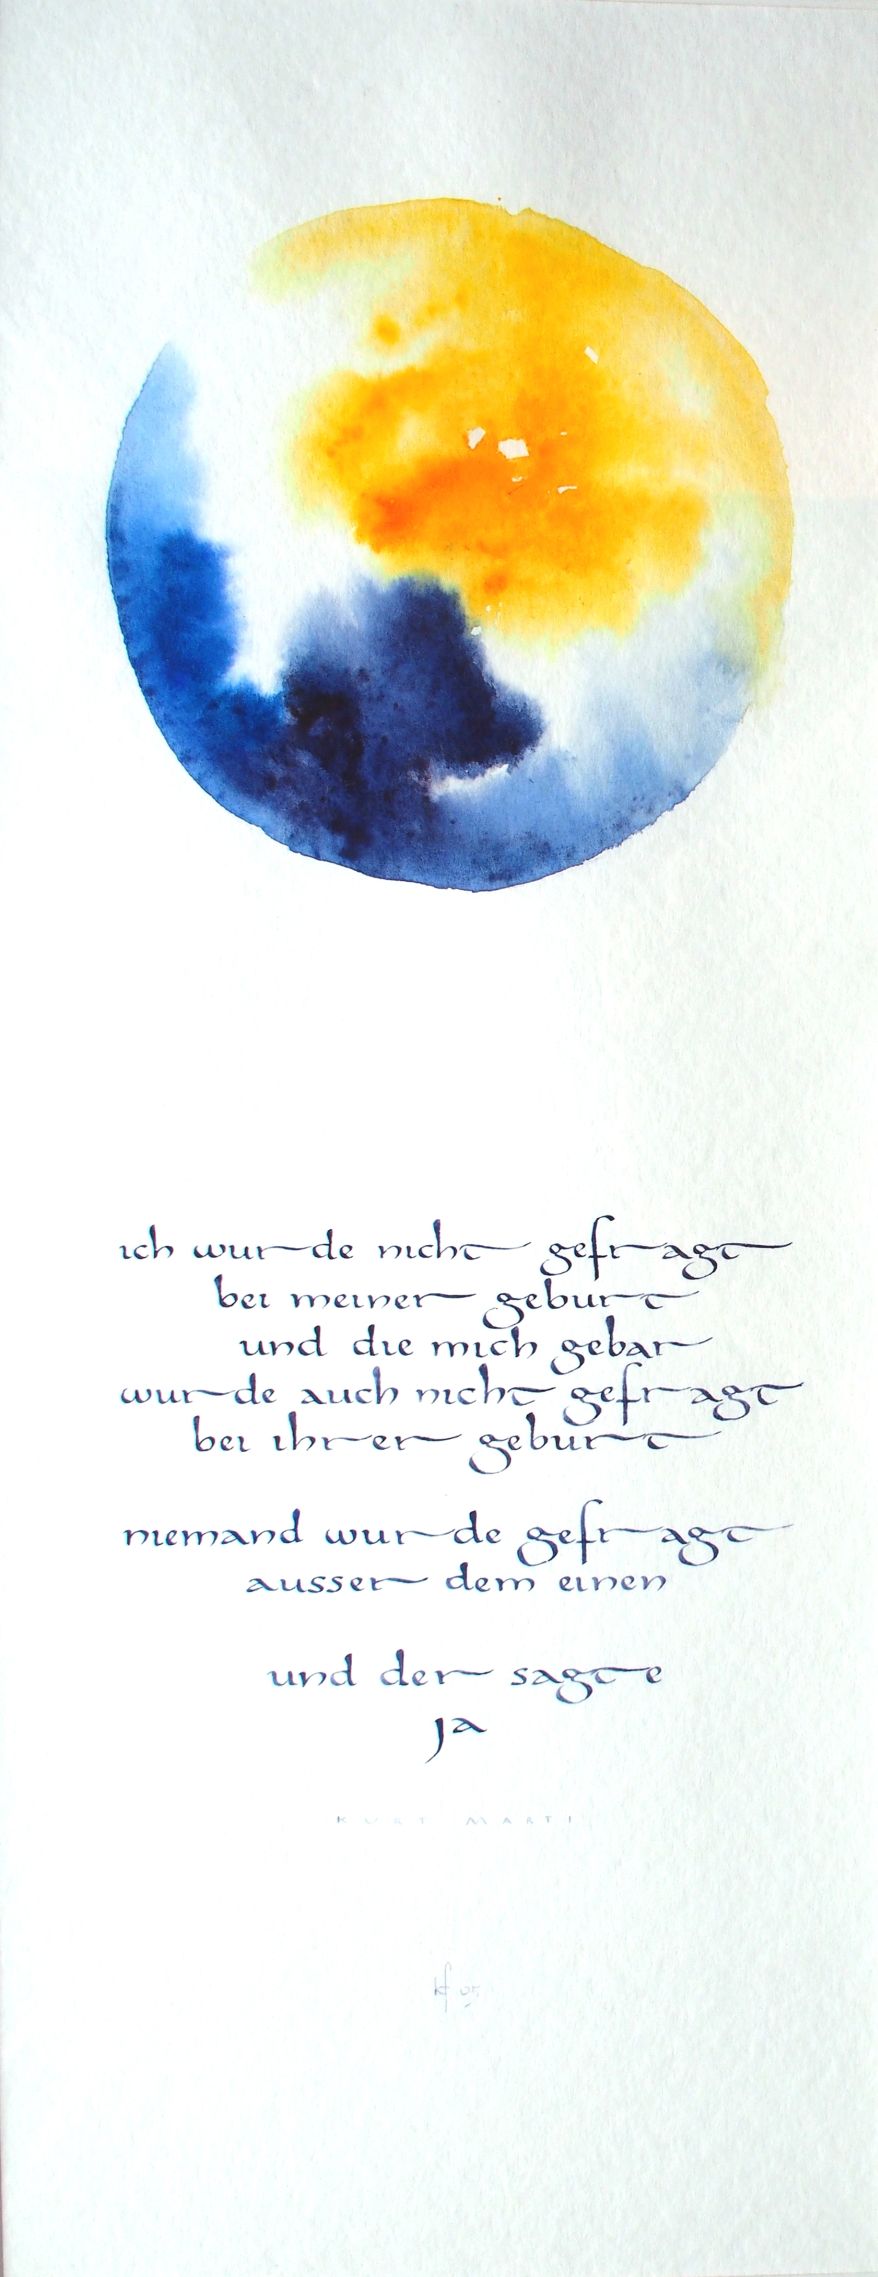 ich wurde nicht gefragt
bei meiner geburt
und die mich gebar
wurde auch nicht gefragt
bei ihrer geburt
niemand wurde gefragt
ausser dem einen
und der sagte
ja
KURT MARTI